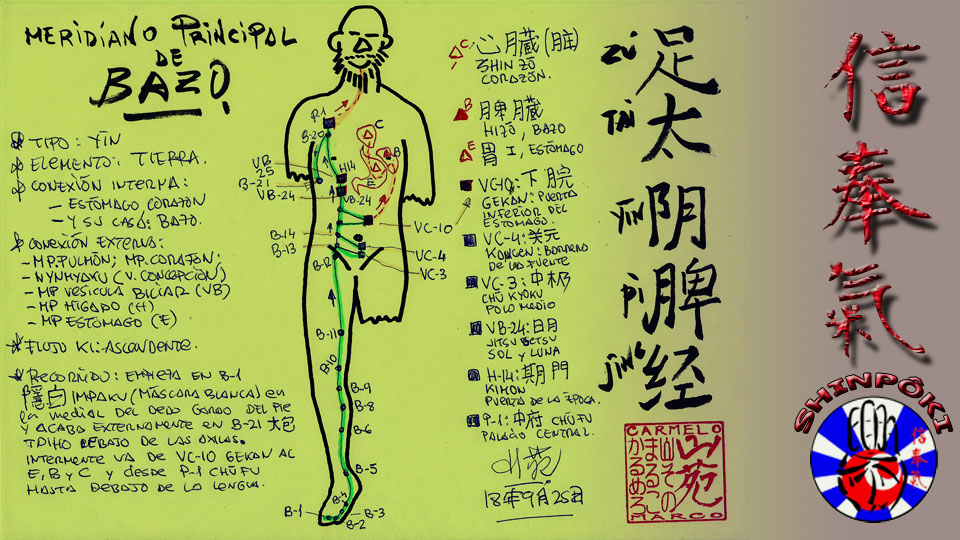 MERIDIANO PRINCIPAL
DE
BAZO
TIPO: YÍN
ELEMENTO: TIERRA.
CONEXIÓN INTERNA:
- ESTÓMAGO CORAZÓN
- Y SU CASA: BAZO.
CONEXIÓN EXTERNA:
- MP.PULMÓN; MP.CORAZON;
- NYNMYAKU (V. CONCEPCIÓN)
- MP VESICULA BILIAR (VB)
- MP HÍGADO (H)
- MP ESTÓMAGO (E)
FLUJO KI: ASCENDENTE.
RECORRIDO: EMPIEZA EN B-1
隱白 IMPAKU (MÁSCARA BLANCA) en
la medial DEL DEDO GORDO DEL PIE
Y ACABA EXTERNAMENTE EN B-21 大包
DEBAJO DE LAS AXILAS.
INTERMENTE VA DE VC-10 GEKAN AL
E, B y C y desde P-1 CHŪFU
HASTA DEBAJO DE LA LENGUA.
P-1
B-20
C
B
VB
25
H14
B-21
VB-24
VB-24
E
VC-10
B-14
B-13
VC-4
B-12
VC-3
B-11
B10
B-9
B-8
B-6
B-5
B-4
B-1
B-3
B-2
C 心臓(脏)
SHIN ZŌ
CORAZÓN.
B 脾臓
HIZŌ, BAZO
E 胃 I, ESTÓMAGO
VC-10: 下脘
GEKAN: PUERTA
INFERIOR DEL
ESTÓMAGO.
VC-4: 关元
KANGEN: BARRERA
DE LA FUENTE
VC-3: 中极
CHŪ KYOKU
POLO MEDIO
VB-24: 日月
JITSU GETSU
SOL y LUNA
H-14: 期門
KIMON
PUERTA DE LA ÉPOCA.
P-1: 中府 CHŪFU
PALACIO CENTRAL.
18年9月25日
ZÚ 足
TÀI 太
YĪN 阴
PÍ 脾
JĪNG 经
CARMELO
山苑
まるこ
かるめろ
MARCO
信
奉
氣
SHINPÔKI
信奉氣